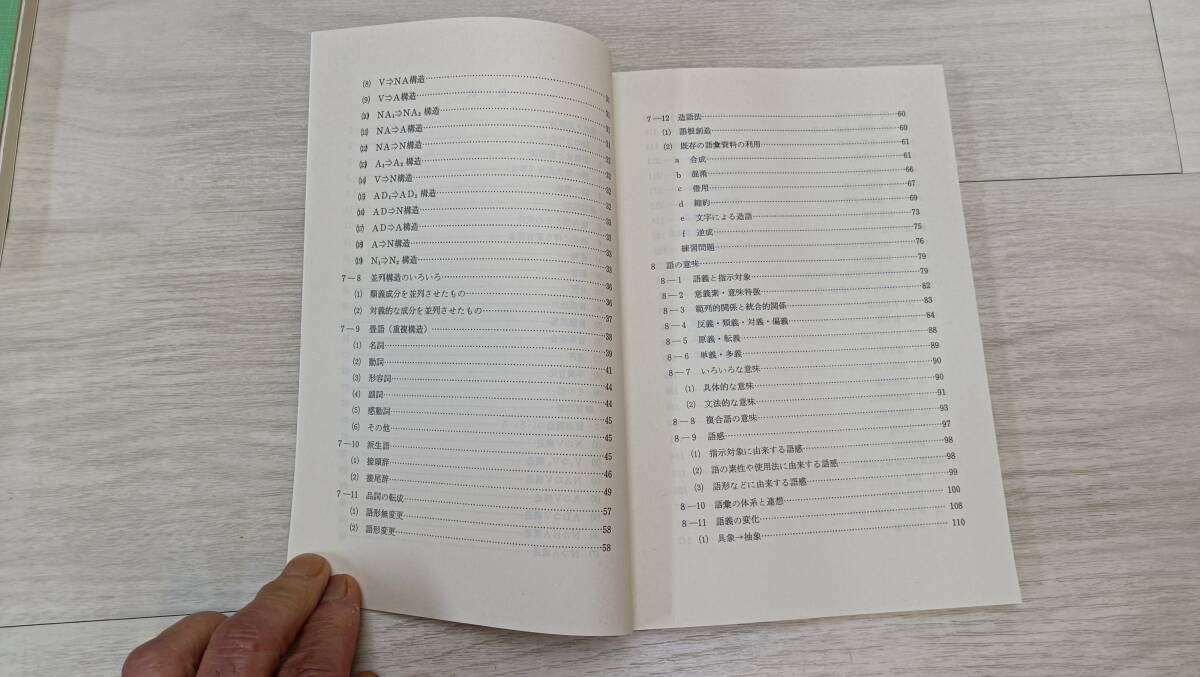 (8) V⇒NA構造……31
(9) V⇒A構造……31
(10) NA₁⇒NA₂構造……31
(11) NA⇒A構造……31
(12) NA⇒N構造……31
(13) A₁⇒A₂構造……32
(14) V⇒N構造……32
(15) AD₁⇒AD₂構造……32
(16) AD⇒N構造……33
(17) AD⇒A構造……33
(18) A⇒N構造……33
(19) N₁⇒N₂構造……33
7―8 並列構造のいろいろ……36
(1) 類義成分を並列させたもの……36
(2) 対義的な成分を並列させたもの……37
7―9 畳語(重複構造)……38
(1) 名詞……39
(2) 動詞……41
(3) 形容詞……44
(4) 副詞……44
(5) 感動詞……45
(6) その他……45
7―10 派生語……45
(1) 接頭辞……46
(2) 接尾辞……49
7―11 品詞の転成……57
(1) 語形無変更……58
(2) 語形変更……58
7―12 造語法……60
(1) 語根創造……60
(2) 既存の語彙資料の利用……61
a 合成……61
b 混淆……66
c 借用……67
d 縮約……69
e 文字による造語……73
f 逆成……75
練習問題……76
8 語の意味……79
8―1 語義と指示対象……79
8―2 意義素・意味特徴……82
8―3 範列的関係と統合的関係……83
8―4 反義・類義・対義・偏義……84
8―5 原義・転義……88
8―6 単義・多義……89
8―7 いろいろな意味……90
(1) 具体的な意味……90
(2) 文法的な意味……91
8―8 複合語の意味……93
8―9 語感……97
(1) 指示対象に由来する語感……98
(2) 語の素性や使用法に由来する語感……98
(3) 語形などに由来する語感……99
8―10 語彙の体系と連想……100
8―11 語義の変化……108
(1) 具象→抽象……110